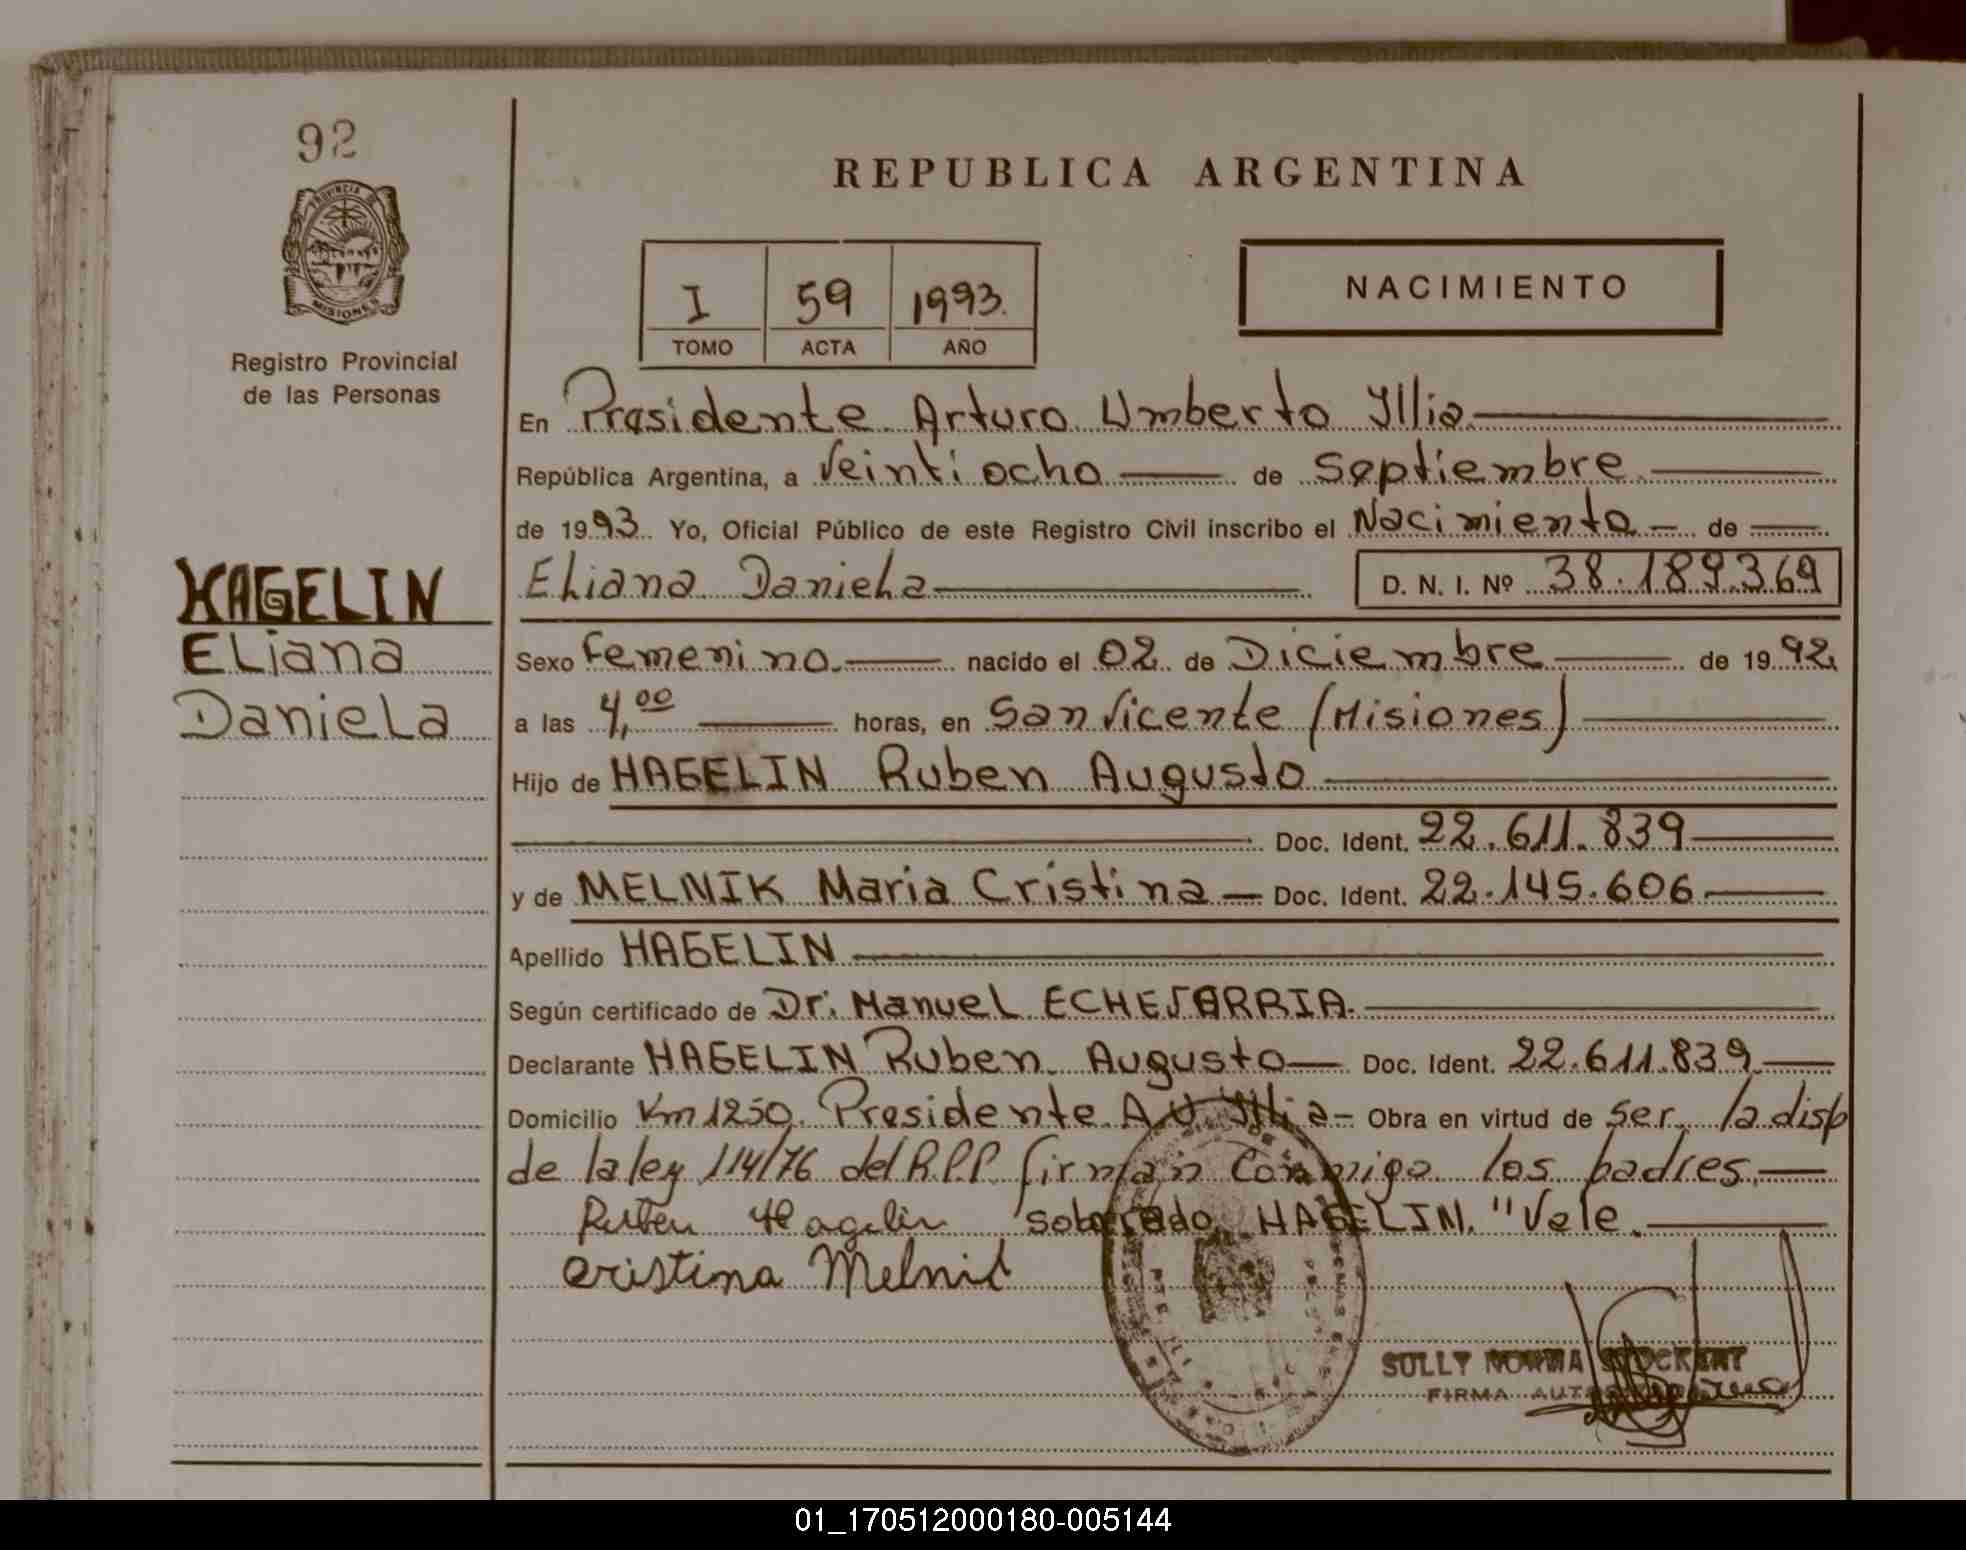 92
PROVINCIA DE
MISIONES
Registro Provincial
de las Personas
HAGELIN
ELiana
DanieLa
REPUBLICA ARGENTINA
I 59 1993.
TOMO ACTA AÑO
NACIMIENTO
En Presidente Arturo Umberto Illia
República Argentina, a Veintiocho de Septiembre
de 1993. Yo, Oficial Público de este Registro Civil inscribo el Nacimiento de
ELiana DanieLa D. N. I. Nº 38.189.369
Sexo Femenino. nacido el 02 de Diciembre de 1992.
a las 4,00 horas, en San Vicente (Misiones)
Hijo de HAGELIN Ruben Augusto
Doc. Ident. 22.611.839
y de MELNIK Maria Cristina Doc. Ident. 22.145.606
Apellido HAGELIN
Según certificado de Dr. ManueL ECHEVARRIA.
Declarante HAGELIN Ruben Augusto Doc. Ident. 22.611.839
Domicilio Km 1250 Presidente A U Illia Obra en virtud de ser la disp
de la ley 114/76 del R.P.P. firman Conmigo los padres.
Ruben Hagelin sobrerado HAGELIN. "Vale.
Cristina Melnik
SULLY NORMA
FIRMA
01_170512000180-005144